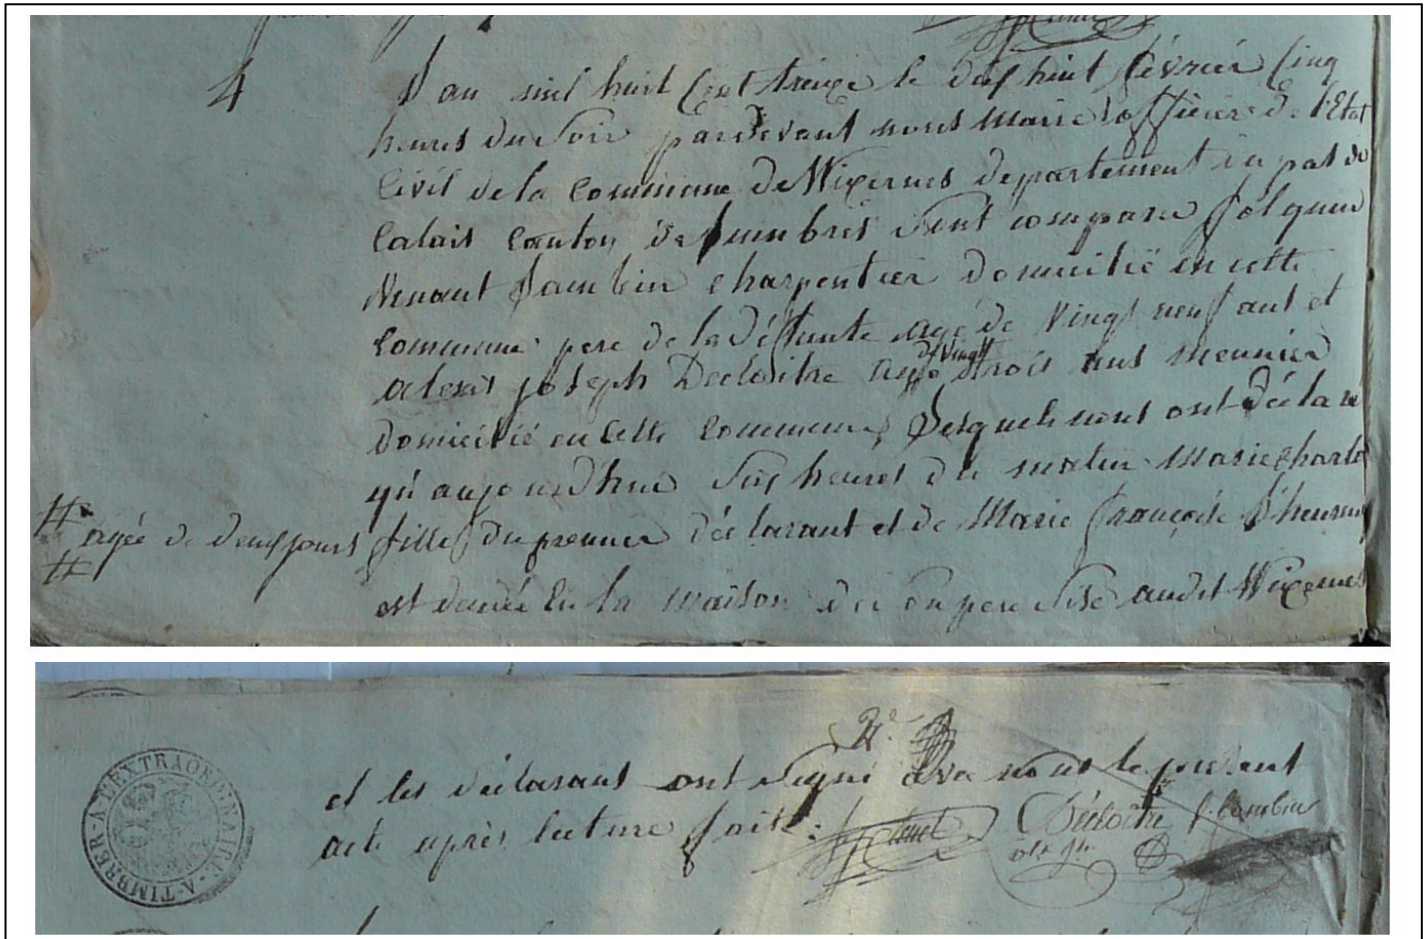 4
L'an mil huit Cent treize le dix huit février Cinq
heures du Soir pardevant nous Maire officier de l'Etat
Civil de la Commune de Wizernes departement du pas de
Calais Canton de Lumbres Sont comparu folquin
Venant Lambin charpentier domicilié en cette
Commune pere de la deffunte agé de Vingt neuf ans et
alexis joseph Decloitre agé de Vingt trois ans meunier
domicilié en Cette Commune, Lesquels nous ont déclaré
qu'aujourdhui Six heures du matin Marie Charlo
# agée de deux jours # fille du premier déclarant et de Marie françoise
est decedée en la maison de Son pere Sise audit Wizernes
et les déclarant ont Signé avec nous le present
acte après lecture faite.
Décloitre f. Lambin
A L'EXTRAORDINAIRE · A TIMBRER